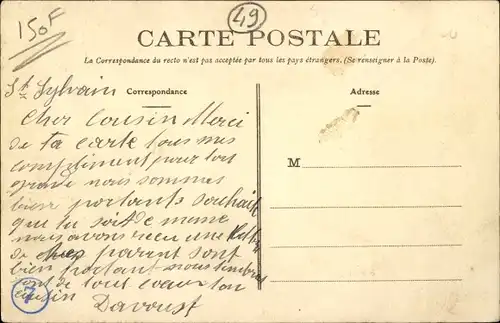 150F
49
CARTE POSTALE
La Correspondance du recto n'est pas acceptée par tous les pays étrangers. (Se renseigner à la Poste).
Correspondance
Adresse
M
St Sylvain
Cher Cousin Merci
de ta carte tous mes
compliment pour ton
nous sommes
bien portants souhaite
que tu soit de meme
nous avons recu une
de parent sont
bien portant nous
de tout coeur ton
cousin Davoust
7